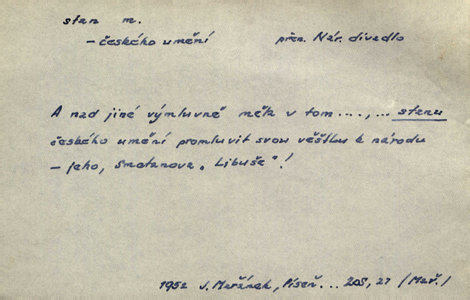 stan m.
– českého umění přen. Nár. divadlo
A nad jiné výmluvně měla v tom ...., ... stanu
českého umění promluvit svou věštbu k národu
– jeho, Smetanova „Libuše“!
1952 J. Mařánek, Píseň... 205, 27 (Mař.)